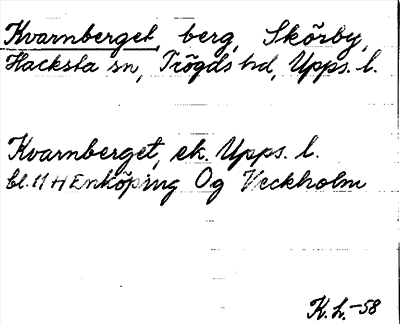 Kvarnberget, berg, Skörby,
Hacksta sn, Trögds hd, Upps. l.
Kvarnberget, ek. Upps. l.
bl. 11 H Enköping Og Veckholm
K.h. -58